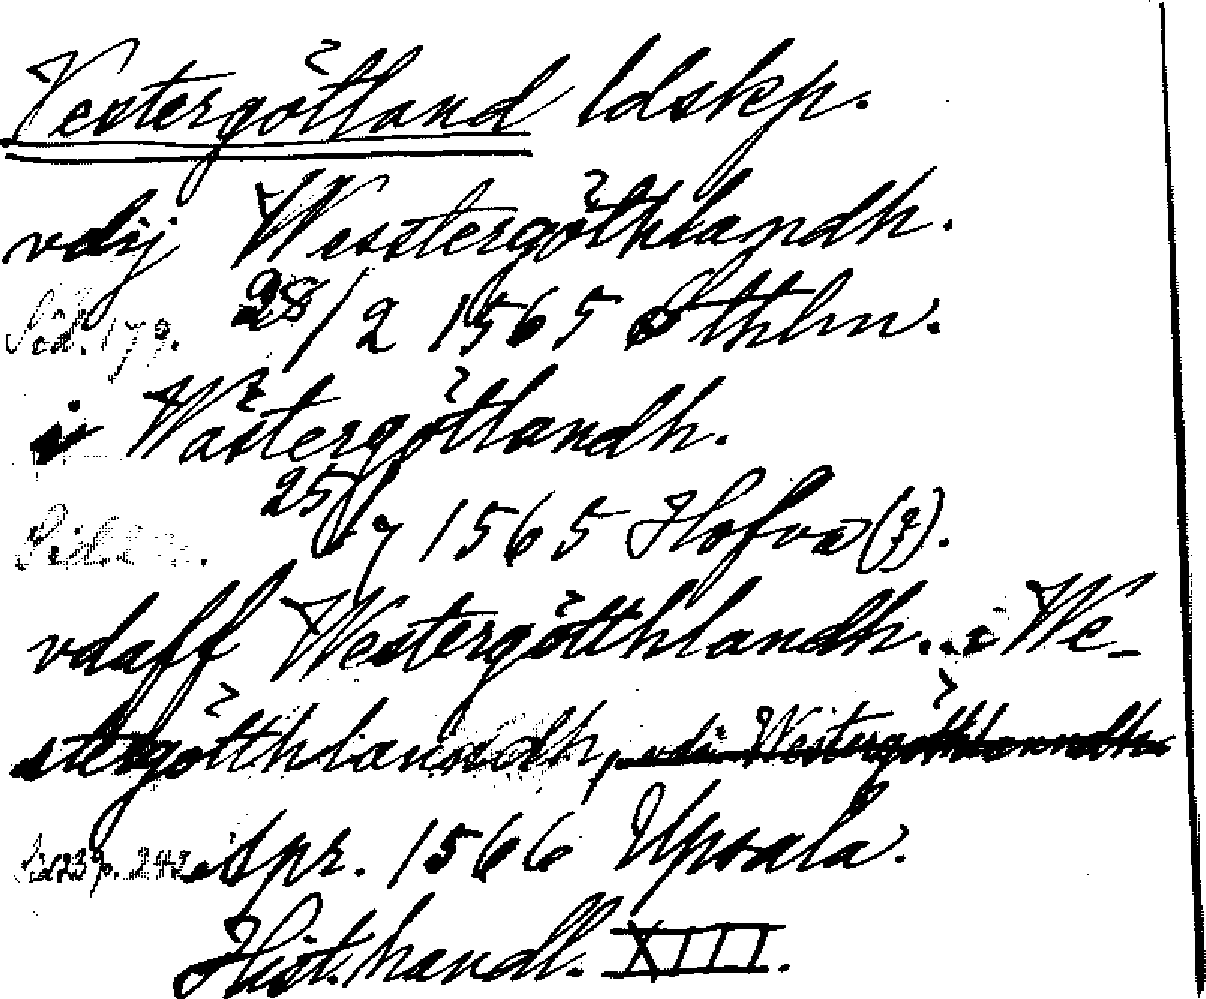 Vestergötland ldskp.
vdij Wesstergöthlandh.
Sid. 179. 28/2 1565 Sthlm.
i Wästergötlandh.
25/7 1565 Hofva (?).
vdaff Westergötthlandh... i We-
stergötthlanndh, vdi Westergöthlanndh
Sid. 239. 242. Spr. 1566 Upsala.
Hist. handl. XIII.